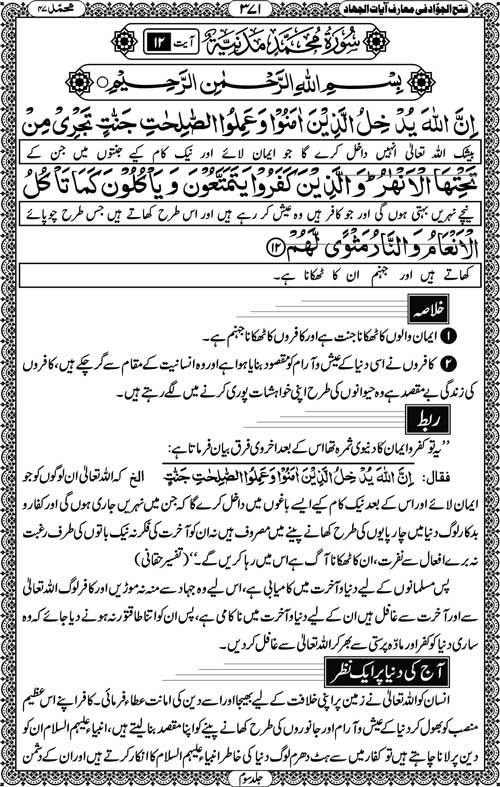 محمد ۴۷
۳۷۱
فتح الجوّاد فی معارف آیات الجهاد
سُوْرَةُ مُحَمَّدٍ مَدَنِيَّةٌ آیت ۱۲
بِسْمِ اللهِ الرَّحْمٰنِ الرَّحِيْمِ
اِنَّ اللهَ يُدْخِلُ الَّذِيْنَ اٰمَنُوْا وَعَمِلُوا الصّٰلِحٰتِ جَنّٰتٍ تَجْرِىْ مِنْ
بیشک اللہ تعالیٰ انہیں داخل کرے گا جو ایمان لائے اور نیک کام کیے جنتوں میں جن کے
تَحْتِهَا الْاَنْهٰرُ ؕ وَالَّذِيْنَ كَفَرُوْا يَتَمَتَّعُوْنَ وَيَاْكُلُوْنَ كَمَا تَاْكُلُ
نیچے نہریں بہتی ہوں گی اور جو کافر ہیں وہ عیش کر رہے ہیں اور اس طرح کھاتے ہیں جس طرح چوپائے
الْاَنْعَامُ وَالنَّارُ مَثْوًى لَّهُمْ ﴿۱۲﴾
کھاتے ہیں اور جہنم ان کا ٹھکانا ہے۔
خلاصہ
۱ ایمان والوں کا ٹھکانا جنت ہے اور کافروں کا ٹھکانا جہنم ہے۔
۲ کافروں نے اسی دنیا کے عیش و آرام کو مقصود بنایا ہوا ہے اور وہ انسانیت کے مقام سے گر چکے ہیں، کافروں
کی زندگی بے مقصد ہے وہ حیوانوں کی طرح اپنی خواہشات پوری کرنے میں لگے رہتے ہیں۔
ربط
”یہ تو کفر و ایمان کا دنیوی ثمرہ تھا اس کے بعد اخروی فرق بیان فرماتا ہے:
فقال: اِنَّ اللهَ يُدْخِلُ الَّذِيْنَ اٰمَنُوْا وَعَمِلُوا الصّٰلِحٰتِ جَنّٰتٍ الخ کہ اللہ تعالیٰ ان لوگوں کو جو
ایمان لائے اور اس کے بعد نیک کام کیے ایسے باغوں میں داخل کرے گا کہ جن میں نہریں جاری ہوں گی اور کفار و
بدکار لوگ دنیا میں چارپایوں کی طرح کھانے پینے میں مصروف ہیں نہ ان کو آخرت کی فکر نہ نیک باتوں کی طرف رغبت
نہ برے افعال سے نفرت، ان کا ٹھکانا آگ ہے اس میں رہا کریں گے۔“ (تفسیر حقانی)
پس مسلمانوں کے لیے دنیا و آخرت میں کامیابی ہے، اس لیے وہ جہاد سے منہ نہ موڑیں اور کافر لوگ اللہ تعالیٰ
سے اور آخرت سے غافل ہیں ان کے لیے دنیا و آخرت میں ناکامی ہے، پس ان کو اتنا طاقتور نہ ہونے دیا جائے کہ وہ
ساری دنیا کو کفر اور مادّہ پرستی سے بھر کر اللہ تعالیٰ سے غافل کردیں۔
آج کی دنیا پر ایک نظر
انسان کو اللہ تعالیٰ نے زمین پر اپنی خلافت کے لیے بھیجا اور اسے دین کی امانت عطاء فرمائی۔ کافر اپنے اس عظیم
منصب کو بھول کر دنیا کے عیش و آرام اور جانوروں کی طرح کھانے پینے کو اپنا مقصد بنا لیتے ہیں، انبیاء علیہم السلام ان کو
دین پر لانا چاہتے ہیں تو کفار میں سے ہٹ دھرم لوگ دنیا کی خاطر انبیاء علیہم السلام کا انکار کرتے ہیں اور ان کے دشمن
جلد سوم